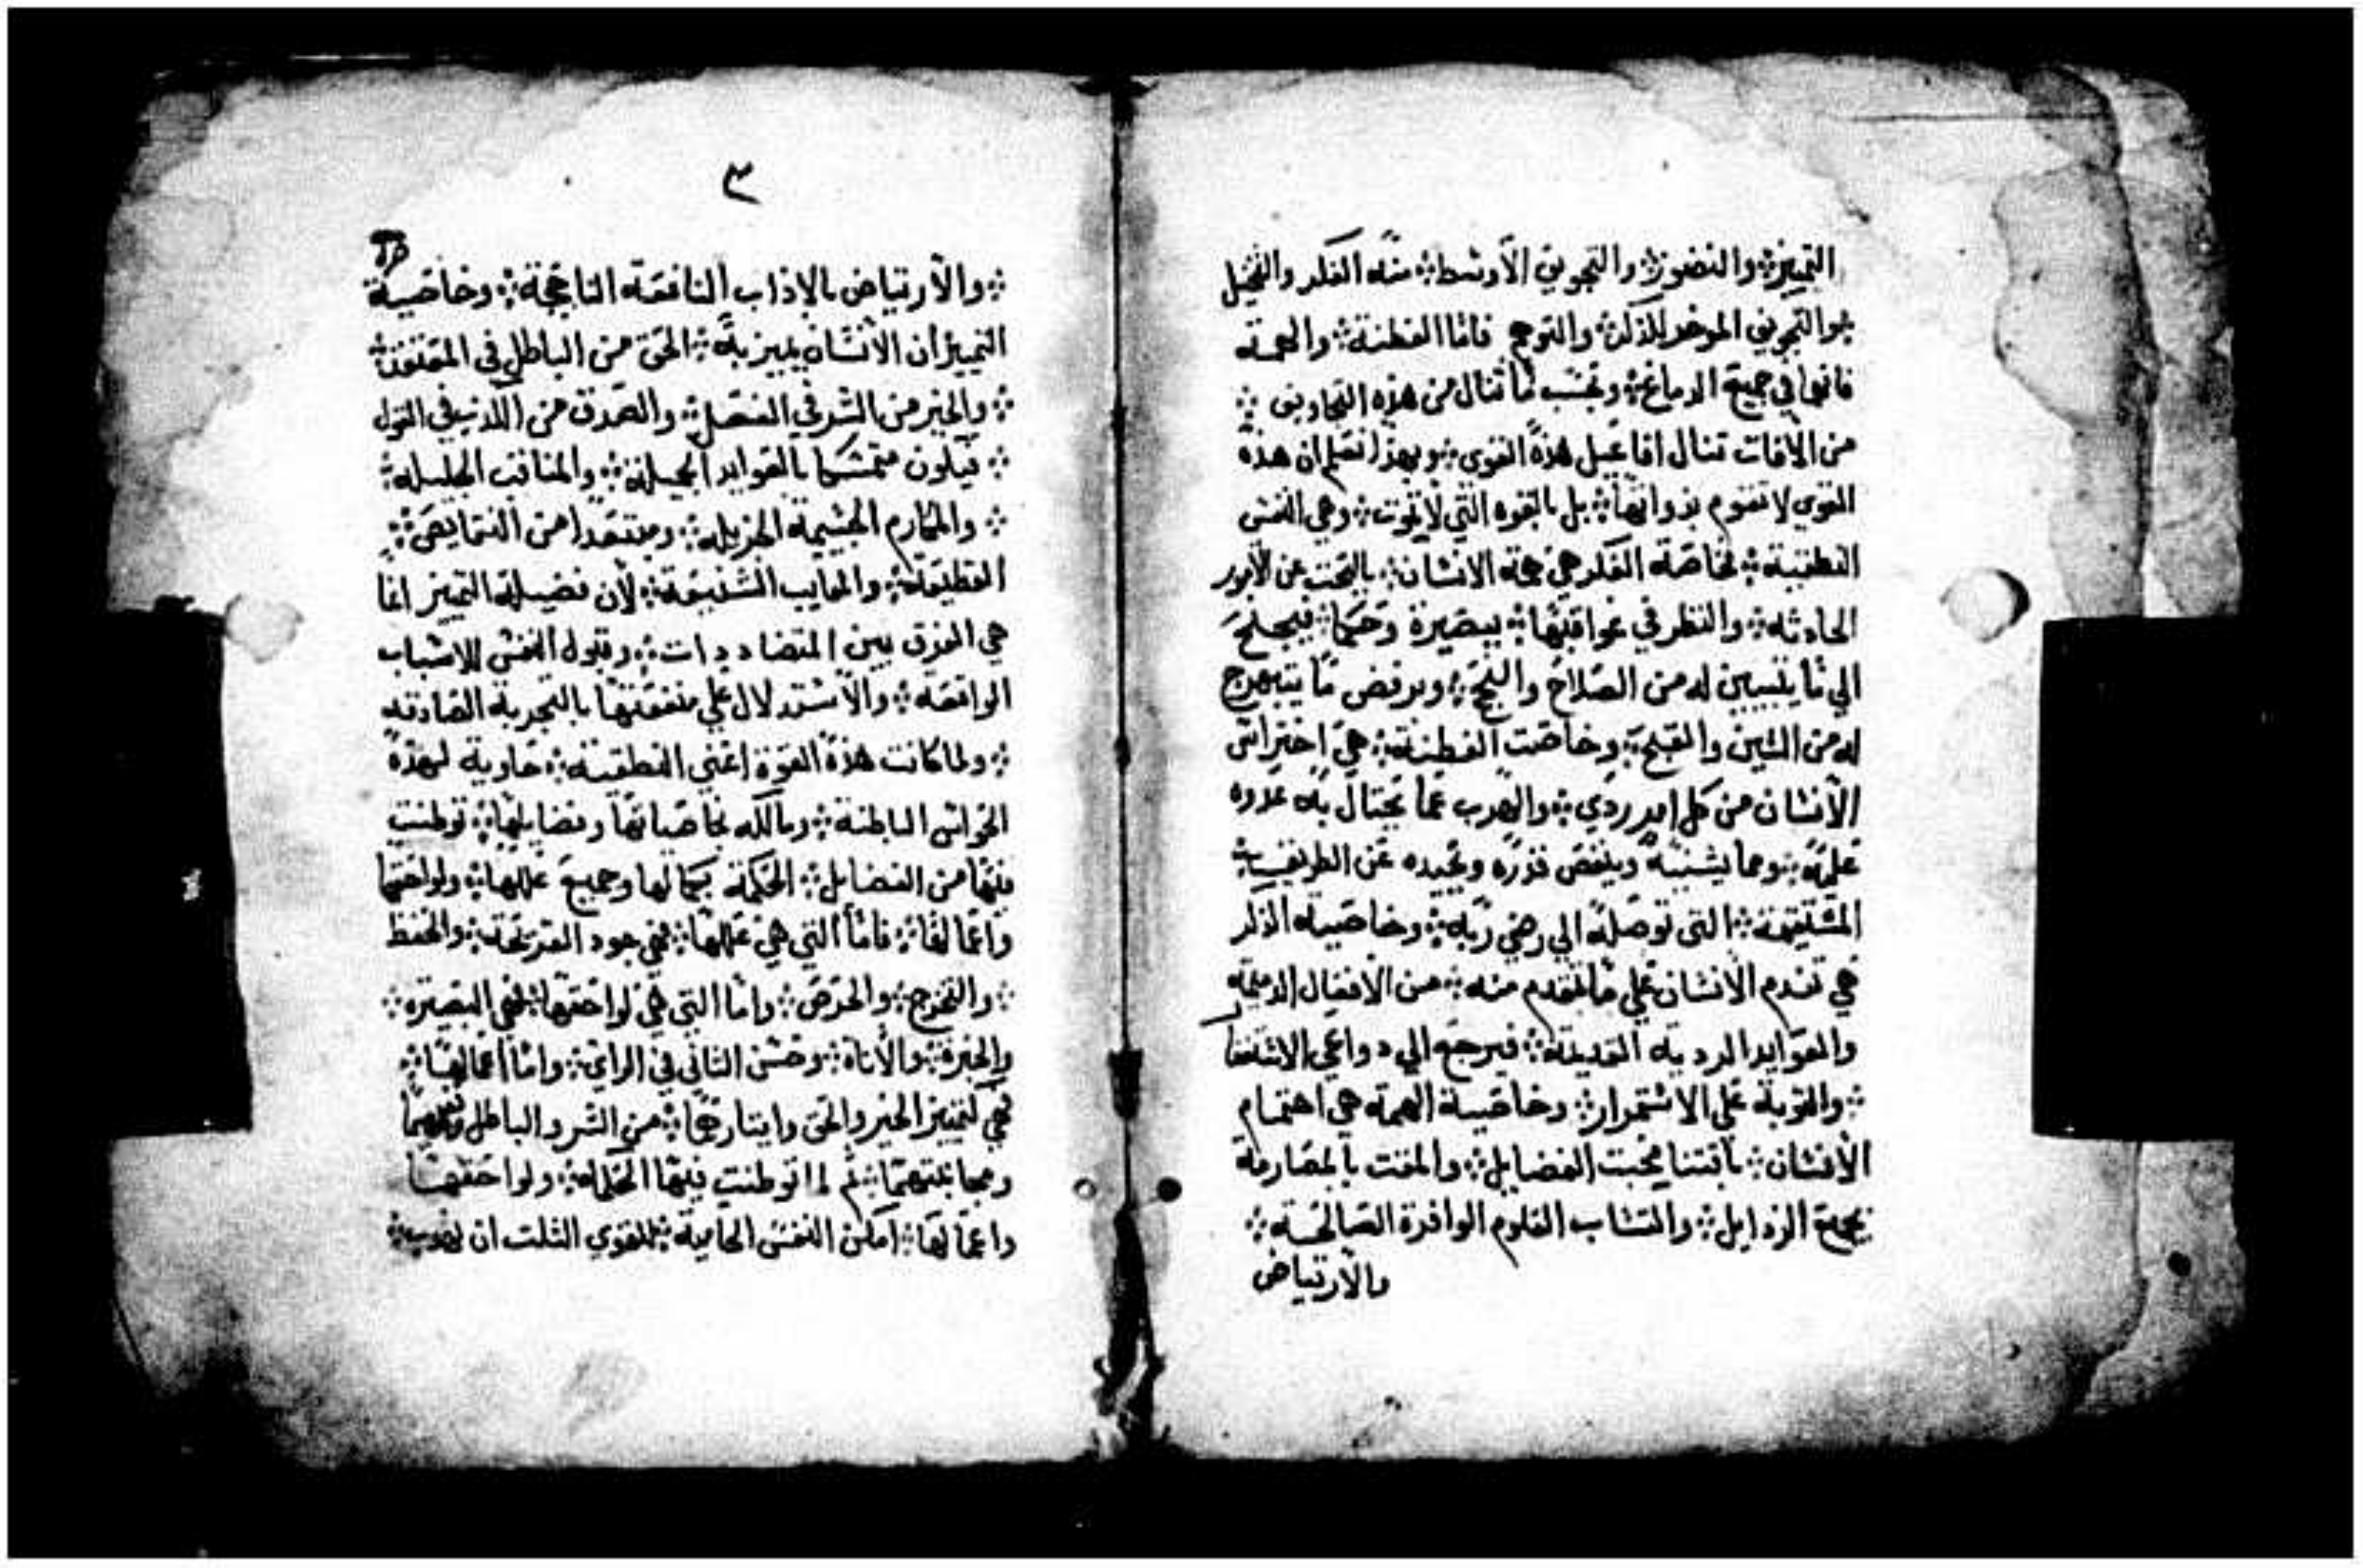 التمييز؞ والتصور؞ والتجويف الأوسط؞ منه الفكر والتخيل
؞والتجويف الموخر للذكر؞ والتوهم فاما الفطنة؞ والهمة
فانها في جميع الدماغ؞ وبحسب ما تنال من هذه التجاويف ؞
من الافات تنال افاعيل هذه القوي؞ وبهذا نعلم ان هذه
القوي لا تقوم بذواتها؞ بل بالقوه التي لا تموت؞ وهي النفس
النطقية؞ فخاصة الفكر هي همة الانسان؞ بالبحث عن الامور
الحادثه؞ والنظر في عواقبها؞ ببصيرة وحكم؞ فيجنح
الي ما يتبين له من الصلاح والنجح؞ ويرفض ما يتبهرج
له من الشين والقبح؞ وخاصت الفطنة؞ هي احتراس
الأنسان من كل امر ردي؞ والهرب عما يحتال به عدوه
عليه؞ ومما يشينه وينقص قدره ويحيده عن الطريق؞
المستقيمة؞ التي توصله الي رضي ربه؞ وخاصية الذكر
هي تندم الانسان علي ما تقدم منه؞ من الافعال الدميمه
والعوايد الرديه القديمة؞ فيرجع الي دواعي الاستغفا
؞ والتوبة علي الاستمرار؞ وخاصية الهمة هي اهتمام
الأنسان؞ باقتنا محبت الفضايل؞ والمقت بالمصارمة
لجميع الرذايل؞ واكتساب العلوم الوافرة الصالحة؞
والأرتياض
٣
؞ والأرتياض بالاداب النافعة الناجحة؞ وخاصية
التمييز ان الأنسان يميز به؞ الحق من الباطل في المعتقد؞
؞ والخير من الشر في الفعل؞ والصدق من الكذب في القول
؞ فيكون متمسكا بالعوايد الجميلة؞ والمناقب الجليله؞
؞ والمكارم الجسيمة الجزيله؞ ومبتعدا من النقايص؞
الفظيعة؞ والمعايب الشنيعة؞ لأن فضيلة التمييز انما
هي الفرق بين المتضاددات؞ وقبول النفس للاسباب
الواقعة؞ والأستدلال علي منفعتها بالتجربة الصادقه
؞ ولما كانت هذه القوة اعني النطقية؞ حاوية لهذه
الحواس الباطنة؞ ومالكه خاصياتها وفضايلها؞ توطنت
فيها من الفضايل؞ الحكمة بكمالها وجميع عللها؞ ولواحقها
واعمالها؞ فاما التي هي عللها؞ فهي جود القريحة؞ والحفظ
؞ والتخرج؞ والحرص؞ واما التي هي لواحقها؞ فهي البصيره؞
والخبرة؞ والأناة؞ وحسن التاني في الراي؞ واما اعمالها؞
فهي تمييز الخير والحق وايثارهما؞ من الشر والباطل
ومجانبتهما؞ ثم لما توطنت فيها الحكمه؞ ولواحقها
واعمالها؞ امكن النفس الحاوية؞ للقوي الثلت ان تهذب؞